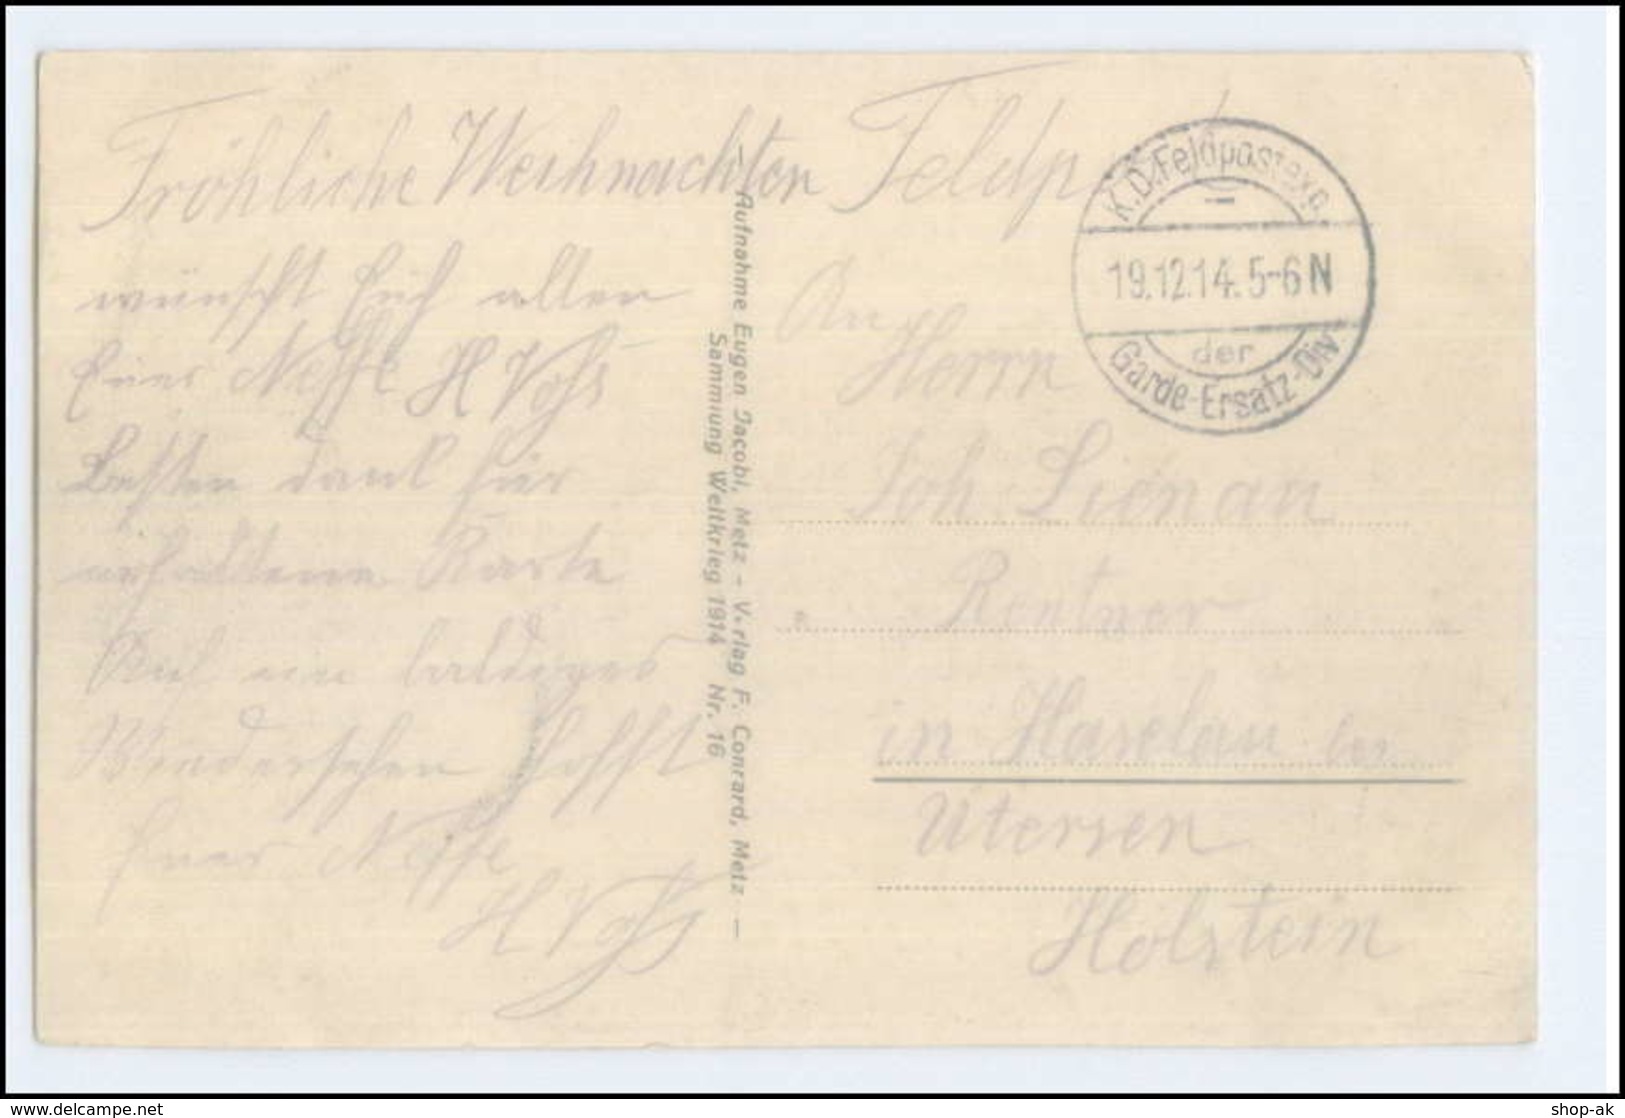 Fröhliche Weihnachten
wünscht Euch allen
Euer Neffe H Voß
Besten dank für
erhaltene Karte
Auf ein baldiges
Wiedersehen hofft
Euer Neffe
H Voß
— Aufnahme Eugen Jacobi, Metz – Verlag F. Conrard, Metz —
Sammlung Weltkrieg 1914 Nr. 16
Feldpost
K.D.Feldpostexp.
19.12.14. 5-6 N
der
Garde-Ersatz-Div.
An
Herrn
Joh. Lienau
Rentner
in Haselau bei
Utersen
Holstein
www.delcampe.net
shop-ak